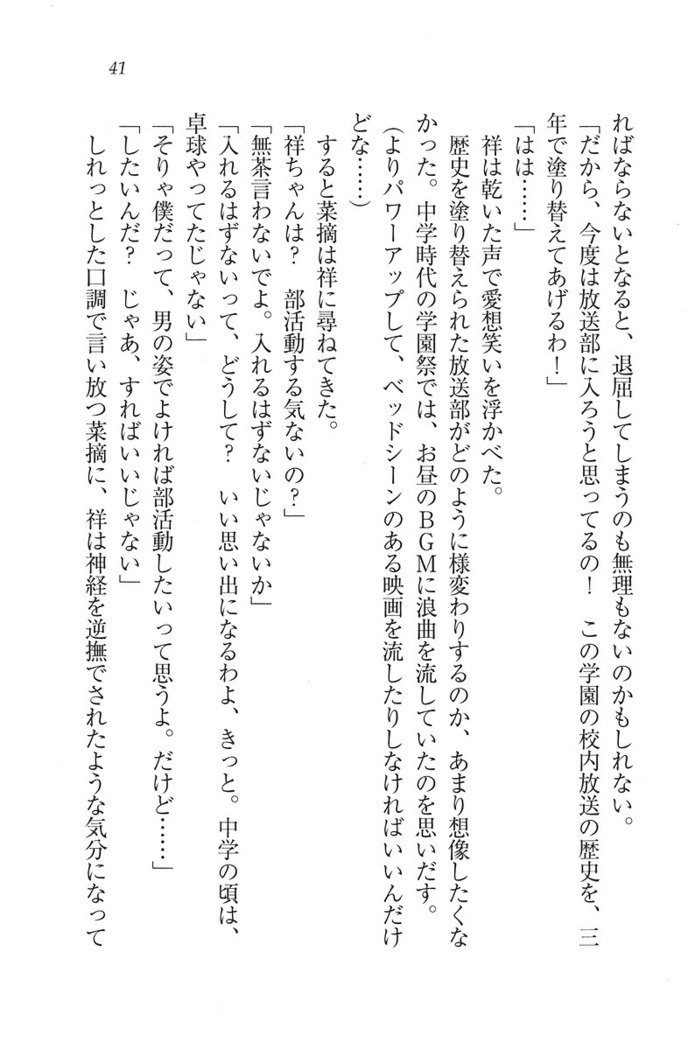 41
ればならないとなると、退屈してしまうのも無理もないのかもしれない。
「だから、今度は放送部に入ろうと思ってるの！　この学園の校内放送の歴史を、三
年で塗り替えてあげるわ！」
「はは……」
　祥は乾いた声で愛想笑いを浮かべた。
　歴史を塗り替えられた放送部がどのように様変わりするのか、あまり想像したくな
かった。中学時代の学園祭では、お昼のＢＧＭに浪曲を流していたのを思いだす。
（よりパワーアップして、ベッドシーンのある映画を流したりしなければいいんだけ
どな……）
　すると菜摘は祥に尋ねてきた。
「祥ちゃんは？　部活動する気ないの？」
「無茶言わないでよ。入れるはずないじゃないか」
「入れるはずないって、どうして？　いい思い出になるわよ、きっと。中学の頃は、
卓球やってたじゃない」
「そりゃ僕だって、男の姿でよければ部活動したいって思うよ。だけど……」
「したいんだ？　じゃあ、すればいいじゃない」
　しれっとした口調で言い放つ菜摘に、祥は神経を逆撫でされたような気分になって